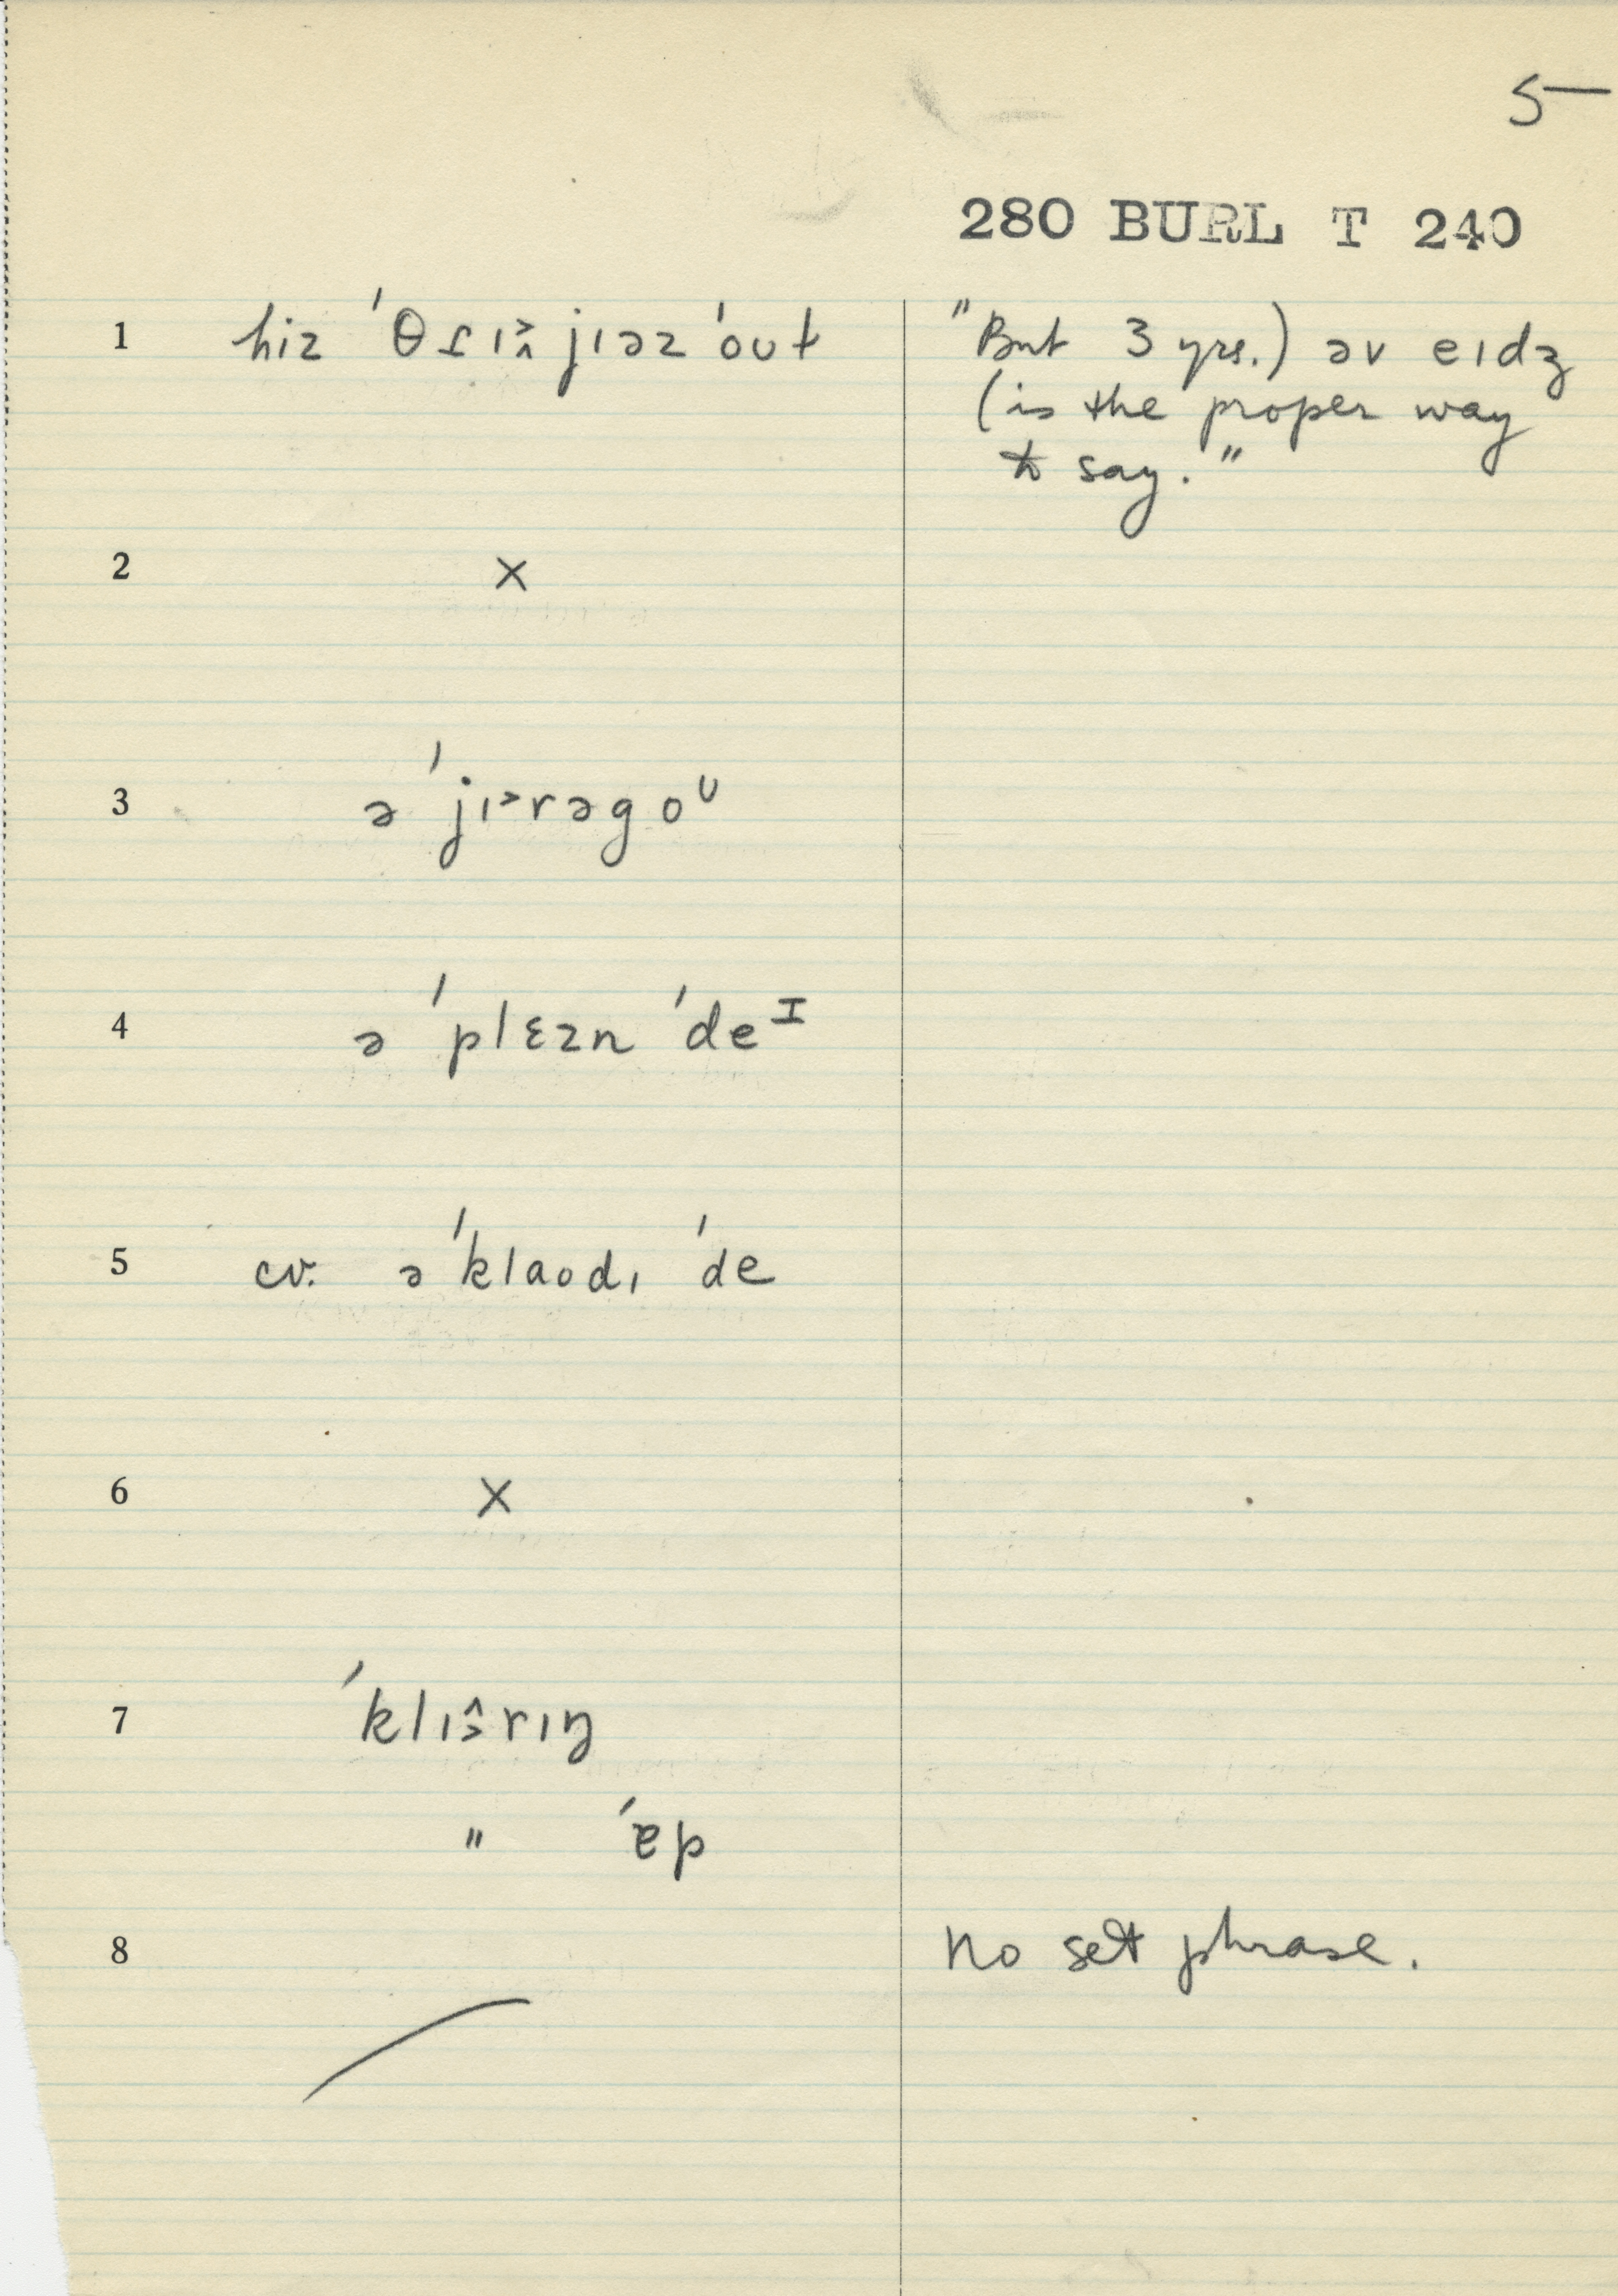 5
280 BURL T 240
1 hiz ˈθɾɪ˃˰ jɪəz ˈout "But 3 yrs.) əv eɪdʒ
(is the proper way
to say."
2 ×
3 ə ˈjɪ˃rəgoᶷ
4 ə ˈplɛzn ˈdeᴵ
5 cv. ə ˈklaodɪ ˈde
6 ×
7 ˈklɪ˄˃rɪŋ
" ˈɐp
8 No set phrase.